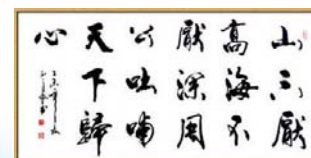 山不厭
高海不
厭深周
公吐哺
天下歸
心